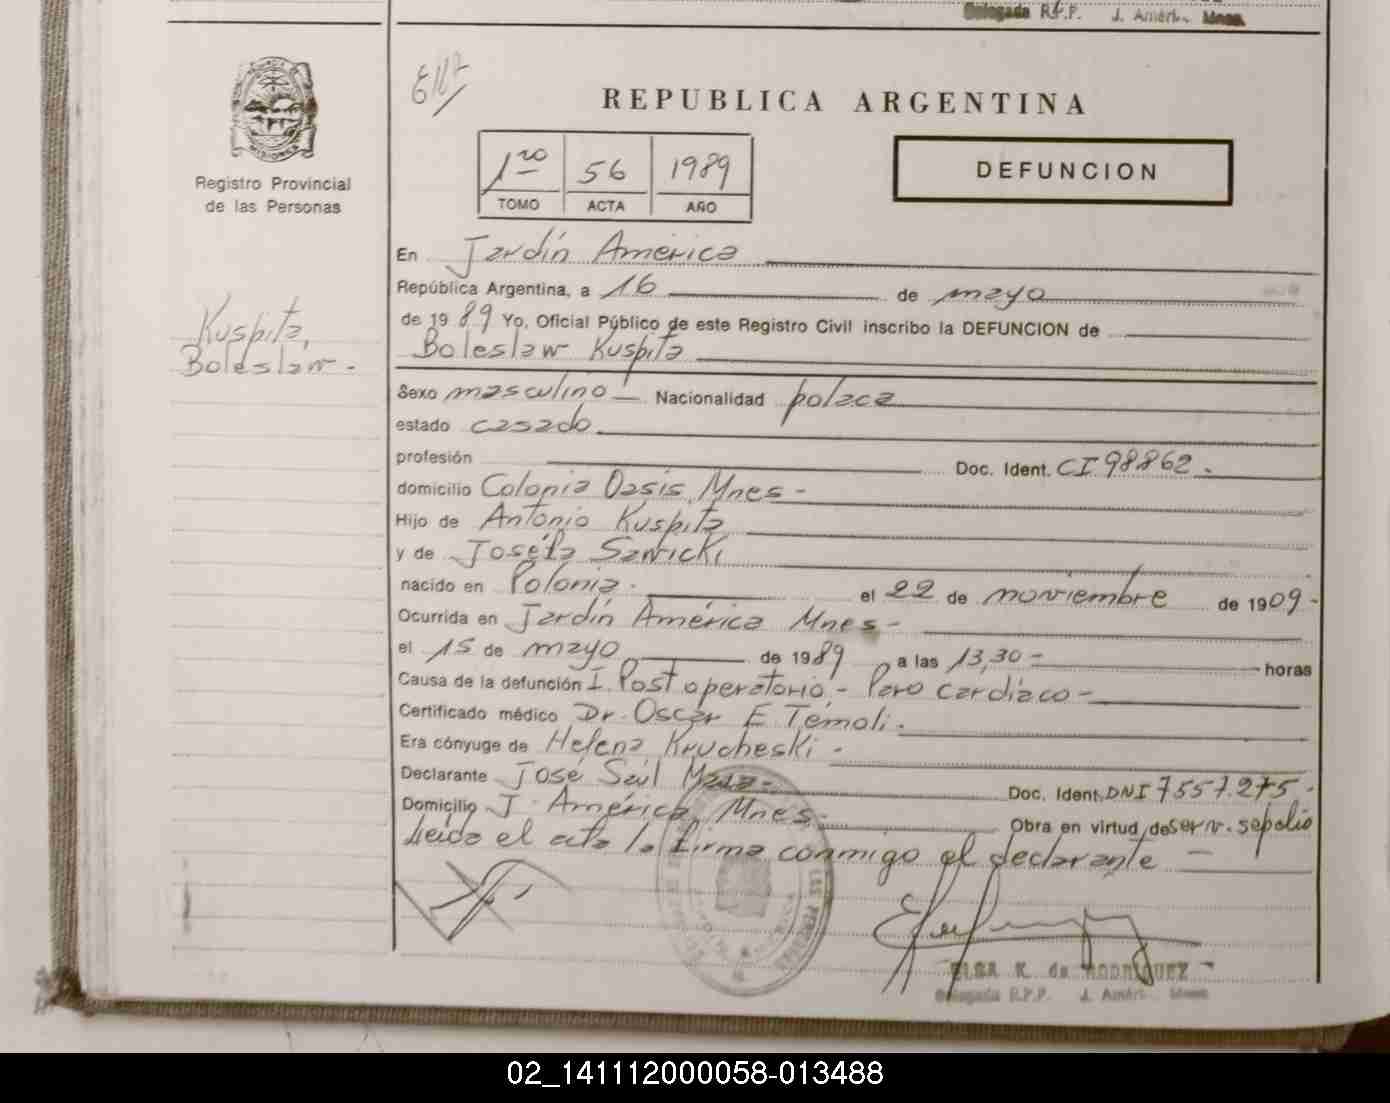 Delegada R.P.P. J. Améri. Mnes.
REPUBLICA ARGENTINA
MISIONES
Registro Provincial
de las Personas
DEFUNCION
1ro 56 1989
TOMO ACTA AÑO
En Jardín América
República Argentina, a 16 de mayo
de 1989 Yo, Oficial Público de este Registro Civil inscribo la DEFUNCION de
Boleslaw Kuspita
Kuspita,
Boleslaw -
Sexo masculino Nacionalidad polaca
estado casado
profesión Doc. Ident. CI 98862.
domicilio Colonia Oasis, Mnes -
Hijo de Antonio Kuspita
y de Josefa Sawicki
nacido en Polonia. el 22 de noviembre de 1909-
Ocurrida en Jardín América Mnes -
el 15 de mayo de 1989 a las 13,30 - horas
Causa de la defunción I. Post operatorio - Paro cardíaco -
Certificado médico Dr. Oscar E. Temoli.
Era cónyuge de Helena Krucheski -
Declarante José Saúl Doc. Ident. DNI 7557.275.
Domicilio J. América, Mnes. Obra en virtud de serv. sepelio
Leída el acta la firma conmigo el declarante -
LAS PERSONAS
ELSA K. de RODRIGUEZ
Delegada R.P.P. J. Améri. Mnes.
02_141112000058-013488